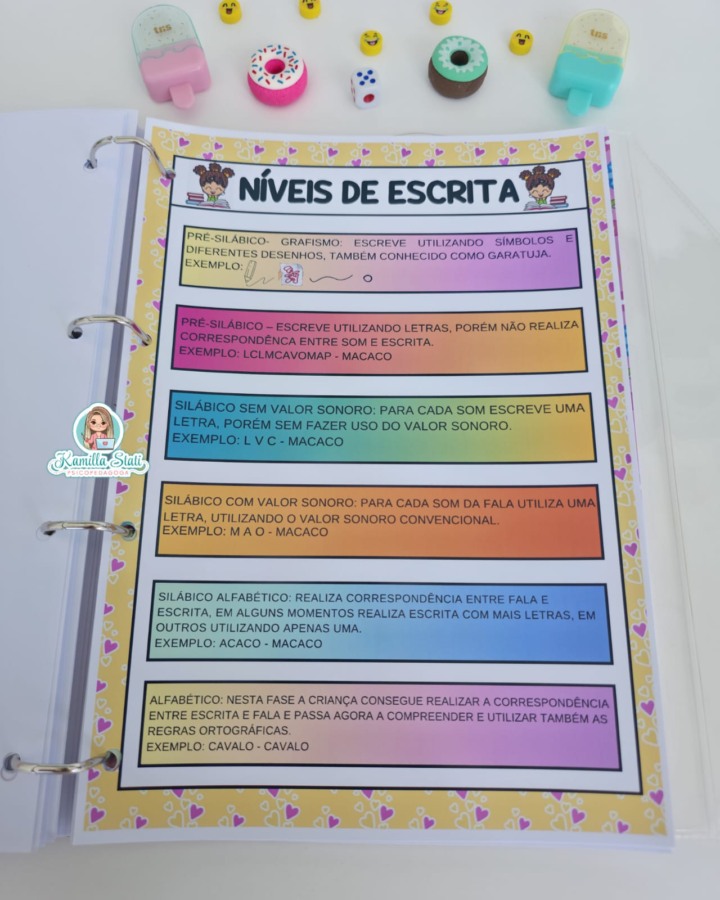 tas
tas
NÍVEIS DE ESCRITA
PRÉ-SILÁBICO- GRAFISMO: ESCREVE UTILIZANDO SÍMBOLOS E
DIFERENTES DESENHOS, TAMBÉM CONHECIDO COMO GARATUJA.
EXEMPLO:
PRÉ-SILÁBICO – ESCREVE UTILIZANDO LETRAS, PORÉM NÃO REALIZA
CORRESPONDÊNCA ENTRE SOM E ESCRITA.
EXEMPLO: LCLMCAVOMAP - MACACO
SILÁBICO SEM VALOR SONORO: PARA CADA SOM ESCREVE UMA
LETRA, PORÉM SEM FAZER USO DO VALOR SONORO.
EXEMPLO: L V C - MACACO
Kamilla Stati
PSICOPEDAGOGA
SILÁBICO COM VALOR SONORO: PARA CADA SOM DA FALA UTILIZA UMA
LETRA, UTILIZANDO O VALOR SONORO CONVENCIONAL.
EXEMPLO: M A O - MACACO
SILÁBICO ALFABÉTICO: REALIZA CORRESPONDÊNCIA ENTRE FALA E
ESCRITA, EM ALGUNS MOMENTOS REALIZA ESCRITA COM MAIS LETRAS, EM
OUTROS UTILIZANDO APENAS UMA.
EXEMPLO: ACACO - MACACO
ALFABÉTICO: NESTA FASE A CRIANÇA CONSEGUE REALIZAR A CORRESPONDÊNCIA
ENTRE ESCRITA E FALA E PASSA AGORA A COMPREENDER E UTILIZAR TAMBÉM AS
REGRAS ORTOGRÁFICAS.
EXEMPLO: CAVALO - CAVALO